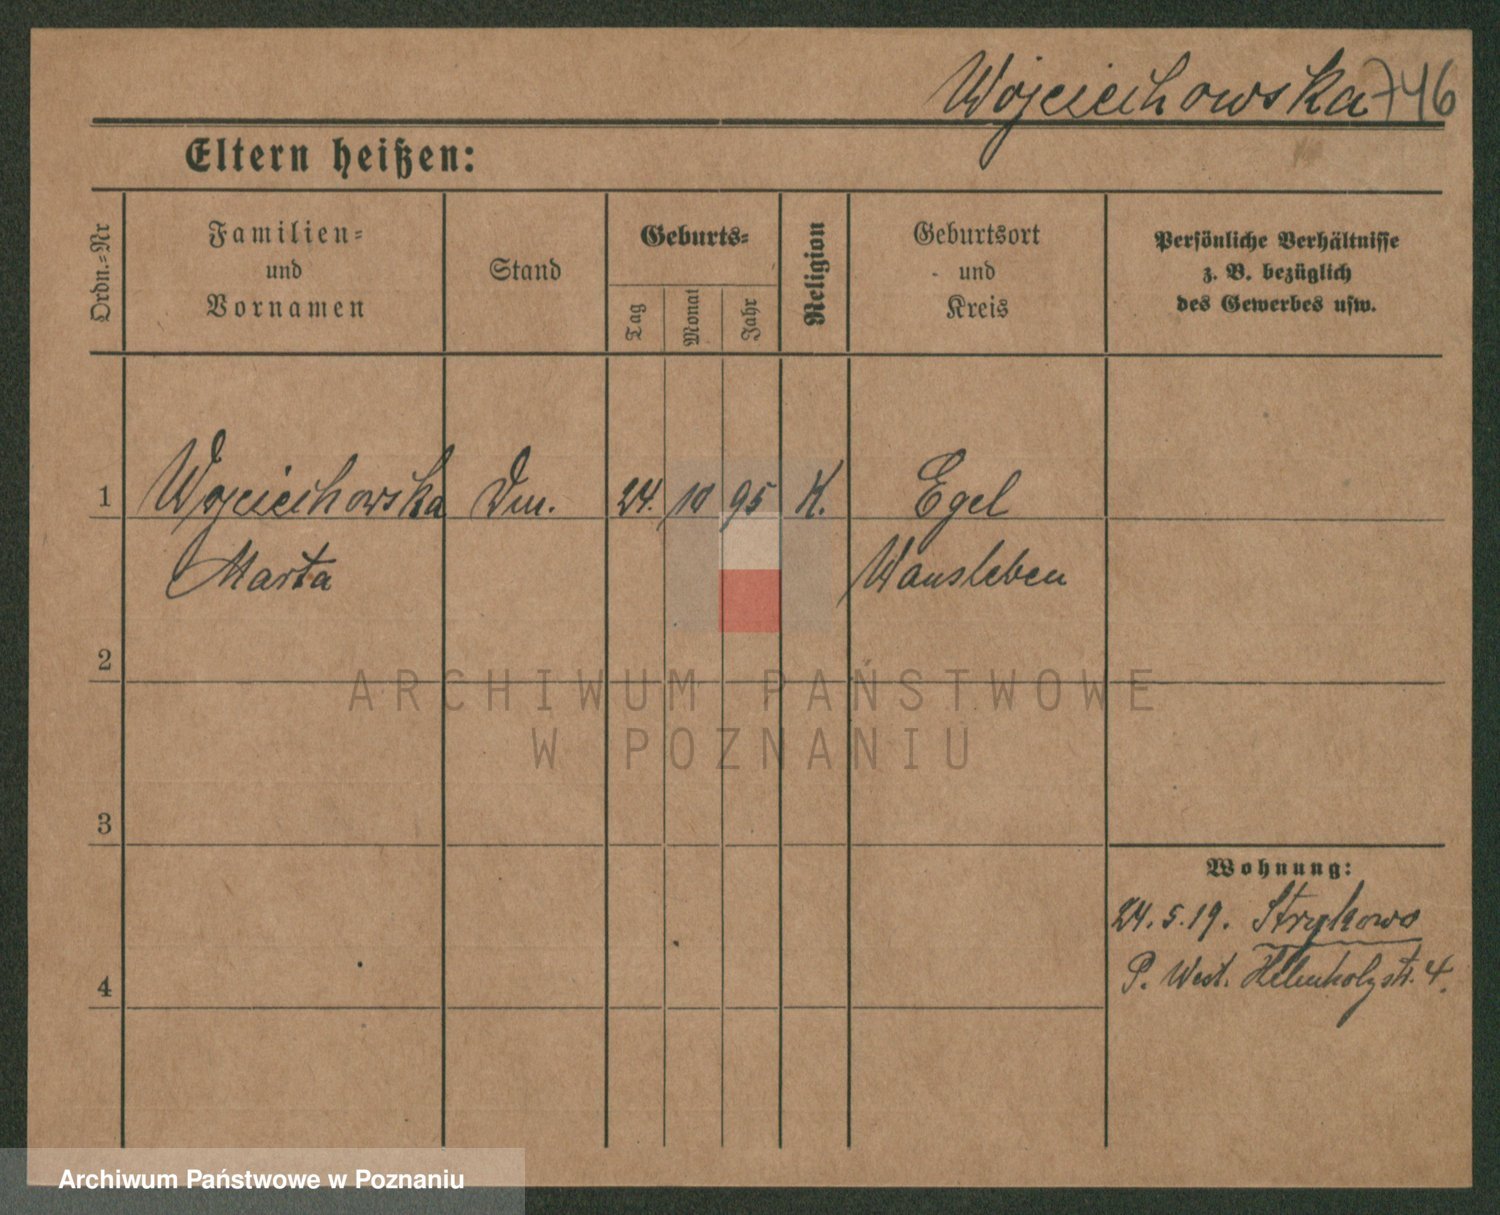 Wojciechowska 746
Eltern heißen:
Ordn.-Nr
Familien-
und
Vornamen
Stand
Geburts-
Tag
Monat
Jahr
Religion
Geburtsort
und
Kreis
Persönliche Verhältnisse
z. B. bezüglich
des Gewerbes usw.
1 Wojciechowska Dm. 24. 10 95 K. Egel
Marta Wansleben
2
ARCHIWUM PAŃSTWOWE
W POZNANIU
3
Wohnung:
24.5.19. Strykowo
4
P. West. 4.
Archiwum Państwowe w Poznaniu